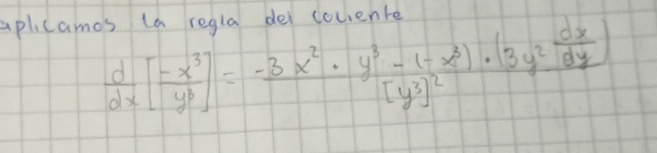 aplicamos la regla del cociente
d/dx [-x³/y³] = (-3x² · y³ - (-x³) · (3y² dx/dy)) / [y³]²